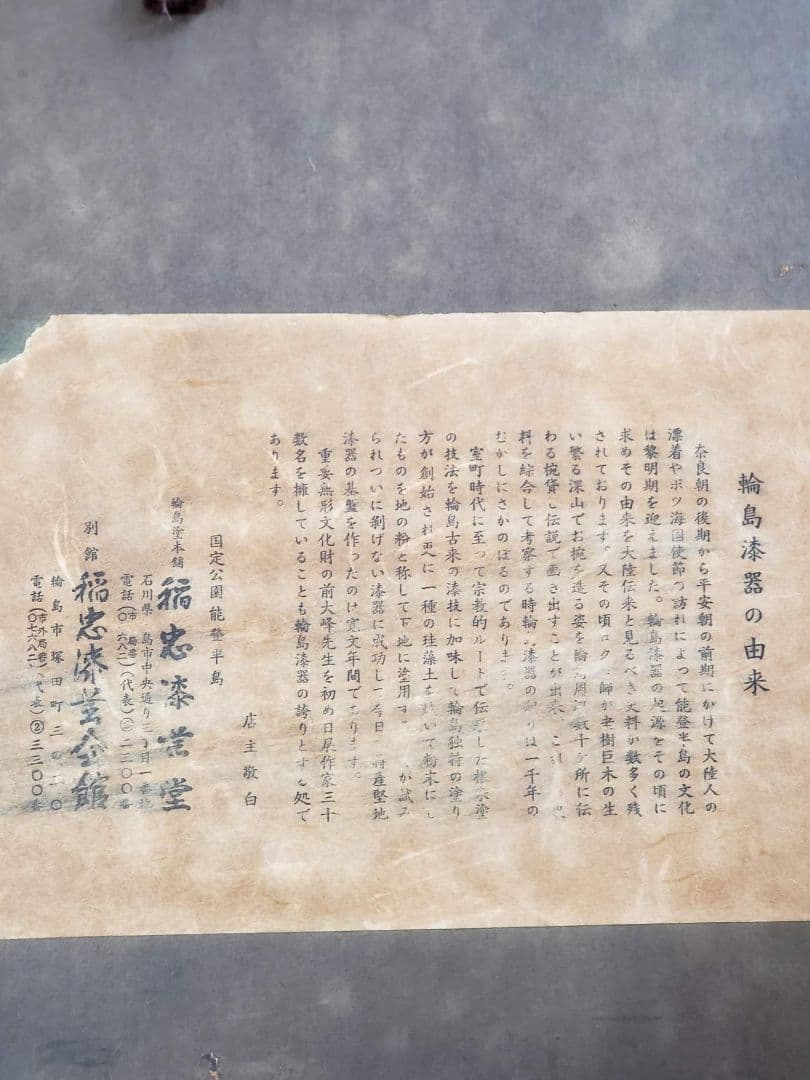 輪島漆器の由来
奈良朝の後期から平安朝の前期にかけて大陸人の
漂着やボツ海国使節の訪れによって能登半島の文化
は黎明期を迎えました。輪島漆器の起源をその頃に
求めその由来を大陸伝来と見るべき史料が数多く残
されております。又その頃ロク 師が老樹巨木の生
い繁る深山でお椀を造る姿を輪 周 数十ケ所に伝
わる椀貸し伝説で画き出すことが出来
料を綜合して考察する時輪 漆器の は一千年の
むかしにさかのぼるのであります。
室町時代に至って宗教的ルートで伝 した 塗
の技法を輪島古来の漆技に加味して輪島独特の塗り
方が創始され更に一種の珪藻土を いて粉末にし
たものを地の粉と称して下地に塗用す か試み
られついに剥げない漆器に成功して今日 特産堅地
漆器の基盤を作ったのは寛文年間であります。
重要無形文化財の前大峰先生を初め日展作家三十
数名を擁していることも輪島漆器の誇りとする処で
あります。
店主敬白
国定公園能登半島
輪島塗本舗 稲忠漆芸堂
石川県 島市中央通り三丁目一番地
電話(市 局番)(代表)②二三〇〇番
別館 稲忠漆芸会館
輪島市塚田町三の二〇
電話(市外局番〇七六八二)(代表)②三三〇〇番